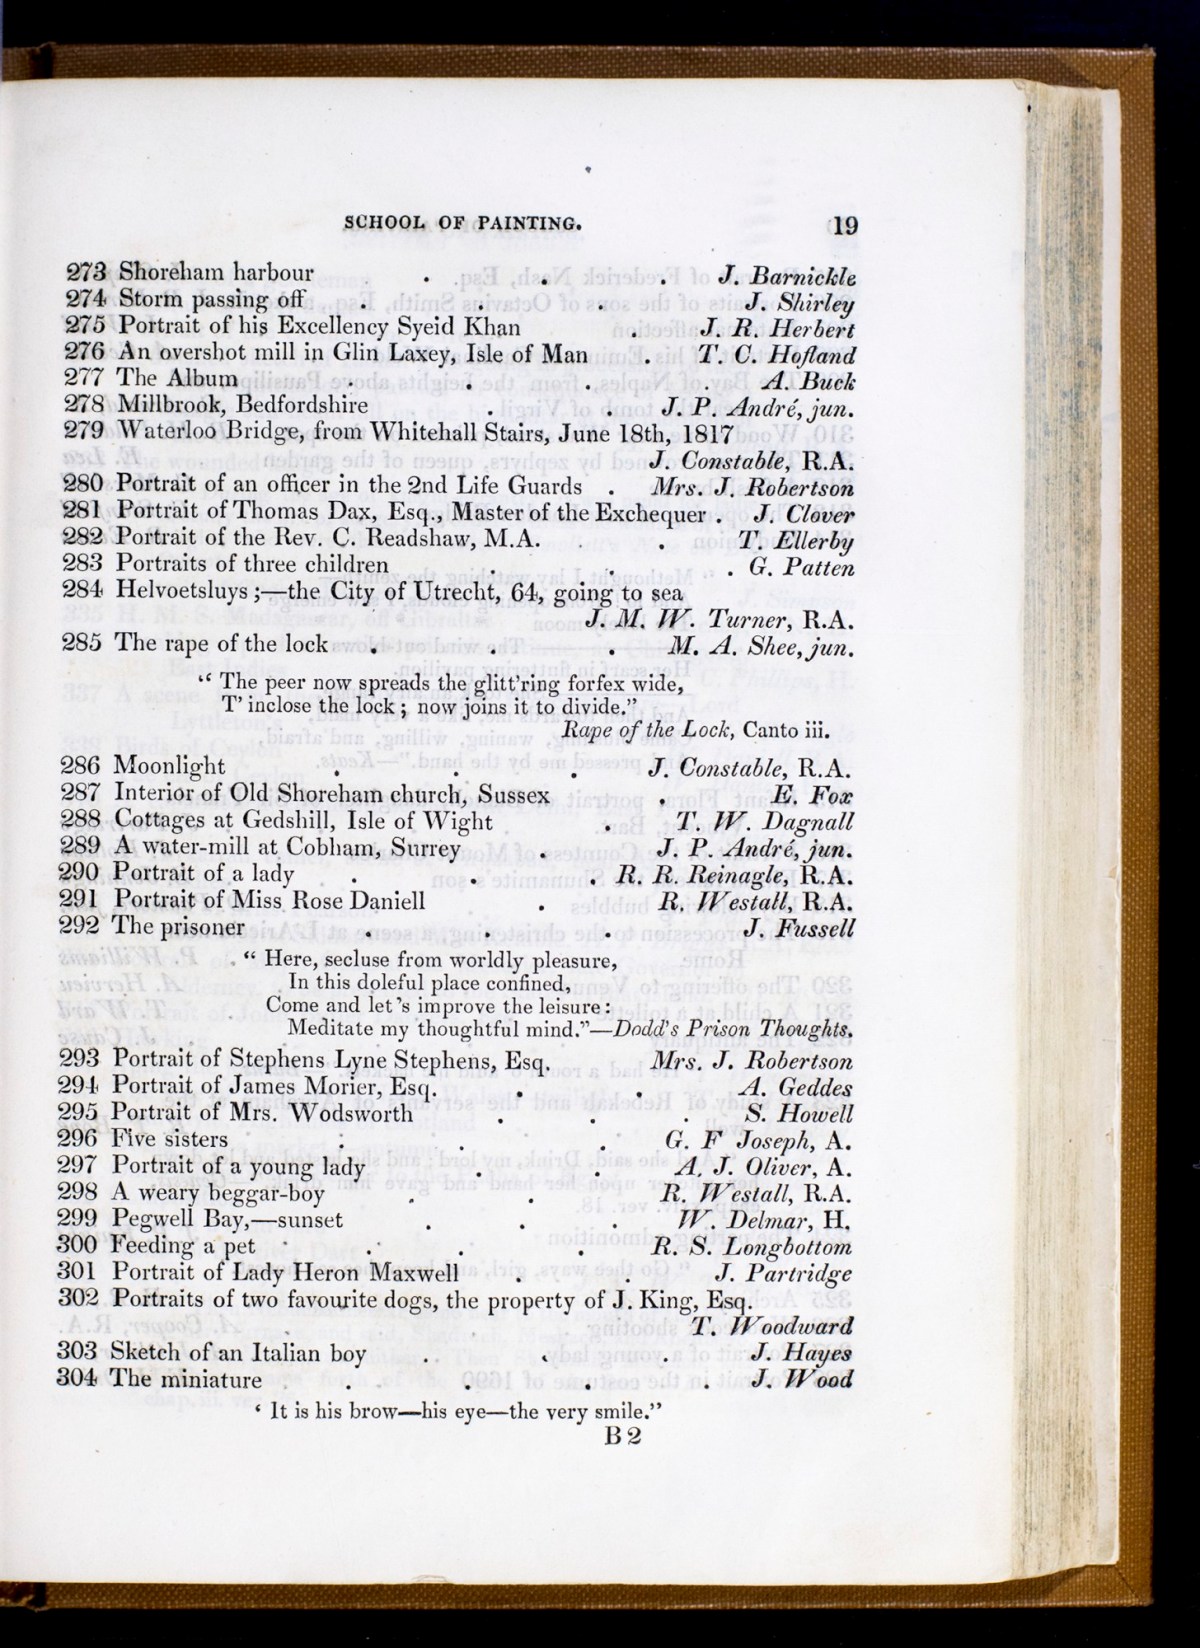 SCHOOL OF PAINTING. 19
273 Shoreham harbour . . . J. Barnickle
274 Storm passing off . . . J. Shirley
275 Portrait of his Excellency Syeid Khan . J. R. Herbert
276 An overshot mill in Glin Laxey, Isle of Man . T. C. Hofland
277 The Album . . . . A. Buck
278 Millbrook, Bedfordshire . . J. P. André, jun.
279 Waterloo Bridge, from Whitehall Stairs, June 18th, 1817
J. Constable, R.A.
280 Portrait of an officer in the 2nd Life Guards . Mrs. J. Robertson
281 Portrait of Thomas Dax, Esq., Master of the Exchequer . J. Clover
282 Portrait of the Rev. C. Readshaw, M.A. . T. Ellerby
283 Portraits of three children . . . G. Patten
284 Helvoetsluys ;—the City of Utrecht, 64, going to sea
J. M. W. Turner, R.A.
285 The rape of the lock . . . M. A. Shee, jun.
“ The peer now spreads the glitt’ring forfex wide,
T’ inclose the lock ; now joins it to divide.”
Rape of the Lock, Canto iii.
286 Moonlight . . . J. Constable, R.A.
287 Interior of Old Shoreham church, Sussex . E. Fox
288 Cottages at Gedshill, Isle of Wight . T. W. Dagnall
289 A water-mill at Cobham, Surrey . J. P. André, jun.
290 Portrait of a lady . . . R. R. Reinagle, R.A.
291 Portrait of Miss Rose Daniell . R. Westall, R.A.
292 The prisoner . . . J. Fussell
“ Here, secluse from worldly pleasure,
In this doleful place confined,
Come and let’s improve the leisure :
Meditate my thoughtful mind.”—Dodd’s Prison Thoughts.
293 Portrait of Stephens Lyne Stephens, Esq. Mrs. J. Robertson
294 Portrait of James Morier, Esq. . . A. Geddes
295 Portrait of Mrs. Wodsworth . . . S. Howell
296 Five sisters . . . G. F Joseph, A.
297 Portrait of a young lady . . A. J. Oliver, A.
298 A weary beggar-boy . . R. Westall, R.A.
299 Pegwell Bay,—sunset . . . W. Delmar, H.
300 Feeding a pet . . . R. S. Longbottom
301 Portrait of Lady Heron Maxwell . . J. Partridge
302 Portraits of two favourite dogs, the property of J. King, Esq.
T. Woodward
303 Sketch of an Italian boy . . . J. Hayes
304 The miniature . . . . J. Wood
‘ It is his brow—his eye—the very smile.”
B 2